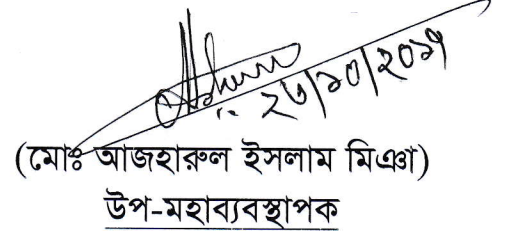 ২৩/১০/২০১৭
(মোঃ আজহারুল ইসলাম মিঞা)
উপ-মহাব্যবস্থাপক